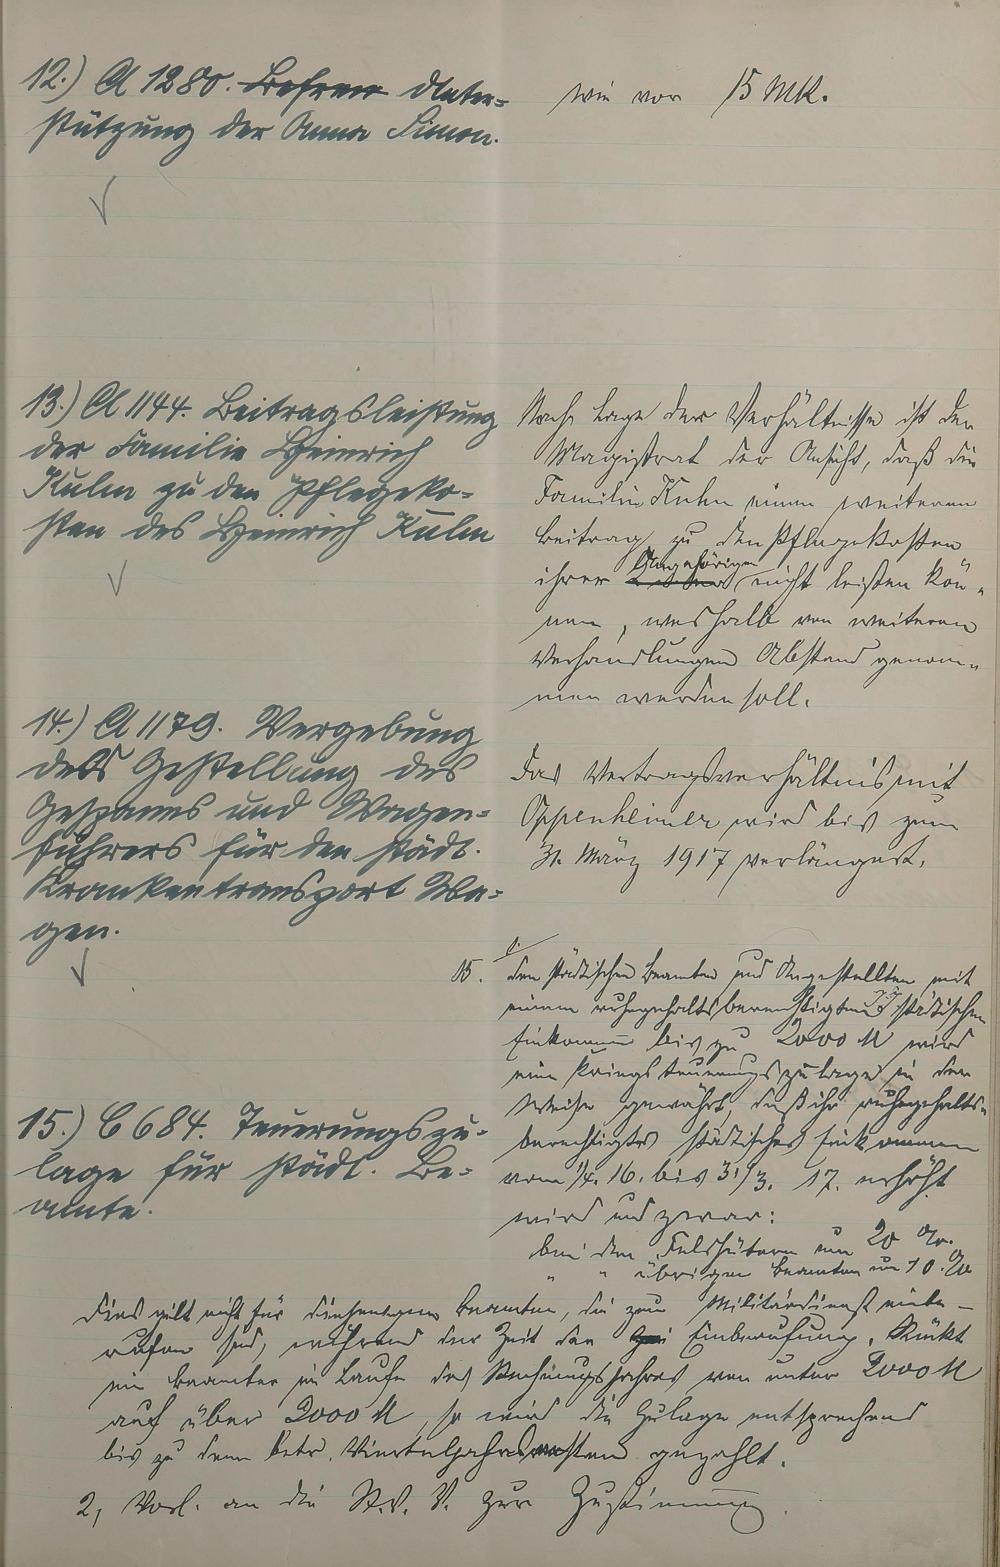 12.) A 1280. Unter=
stützung der Anna Simon.
wie vor 15 Mk.
13.) A 1144. Beitragsleistung
der Familie Heinrich
Kulm zu den Pflegeko=
sten des Heinrich Kulm
Nach Lage der Verhältnisse ist der
Magistrat der Ansicht, daß die
Familie Kuhn einen weiteren
Beitrag zu den Pflegekosten
ihrer Angehörigen nicht leisten kön=
nen, weshalb von weiteren
Verhandlungen Abstand genom=
men werden soll.
14.) A 1179. Vergebung
der Gestellung des
Gespanns und Wagen=
führers für den städt.
Krankentransport Wa=
gen.
Das Vertragsverhältnis mit
Oppenheimer wird bis zum
31. März 1917 verlängert.
15.) C 684. Teuerungszu=
lage für städt. Be=
amte.
15. 1. Den städtischen Beamten und Angestellten mit
einem ruhegehaltsberechtigten städtischen
Einkommen bis zu 2000 M wird
eine Kriegsteuerungszulage in der
Weise gewährt, daß ihr ruhegehalts=
berechtigtes städtisches Einkommen
vom 1/4. 16. bis 31/3. 17. erhöht
wird und zwar:
bei den Feldhütern um 20 %.
" " übrigen Beamten um 10 %
Dies gilt nicht für diejenigen Beamten, die zum Militärdienst einbe=
rufen sind, während der Zeit der Einberufung. Rückt
ein Beamter im Laufe des Rechnungsjahres von unter 2000 M
auf über 2000 M, so wird die Zulage entsprechend
bis zu dem betr. Vierteljahrsersten gezahlt.
2, Vorl. an die St. V. V. zur Zustimmung